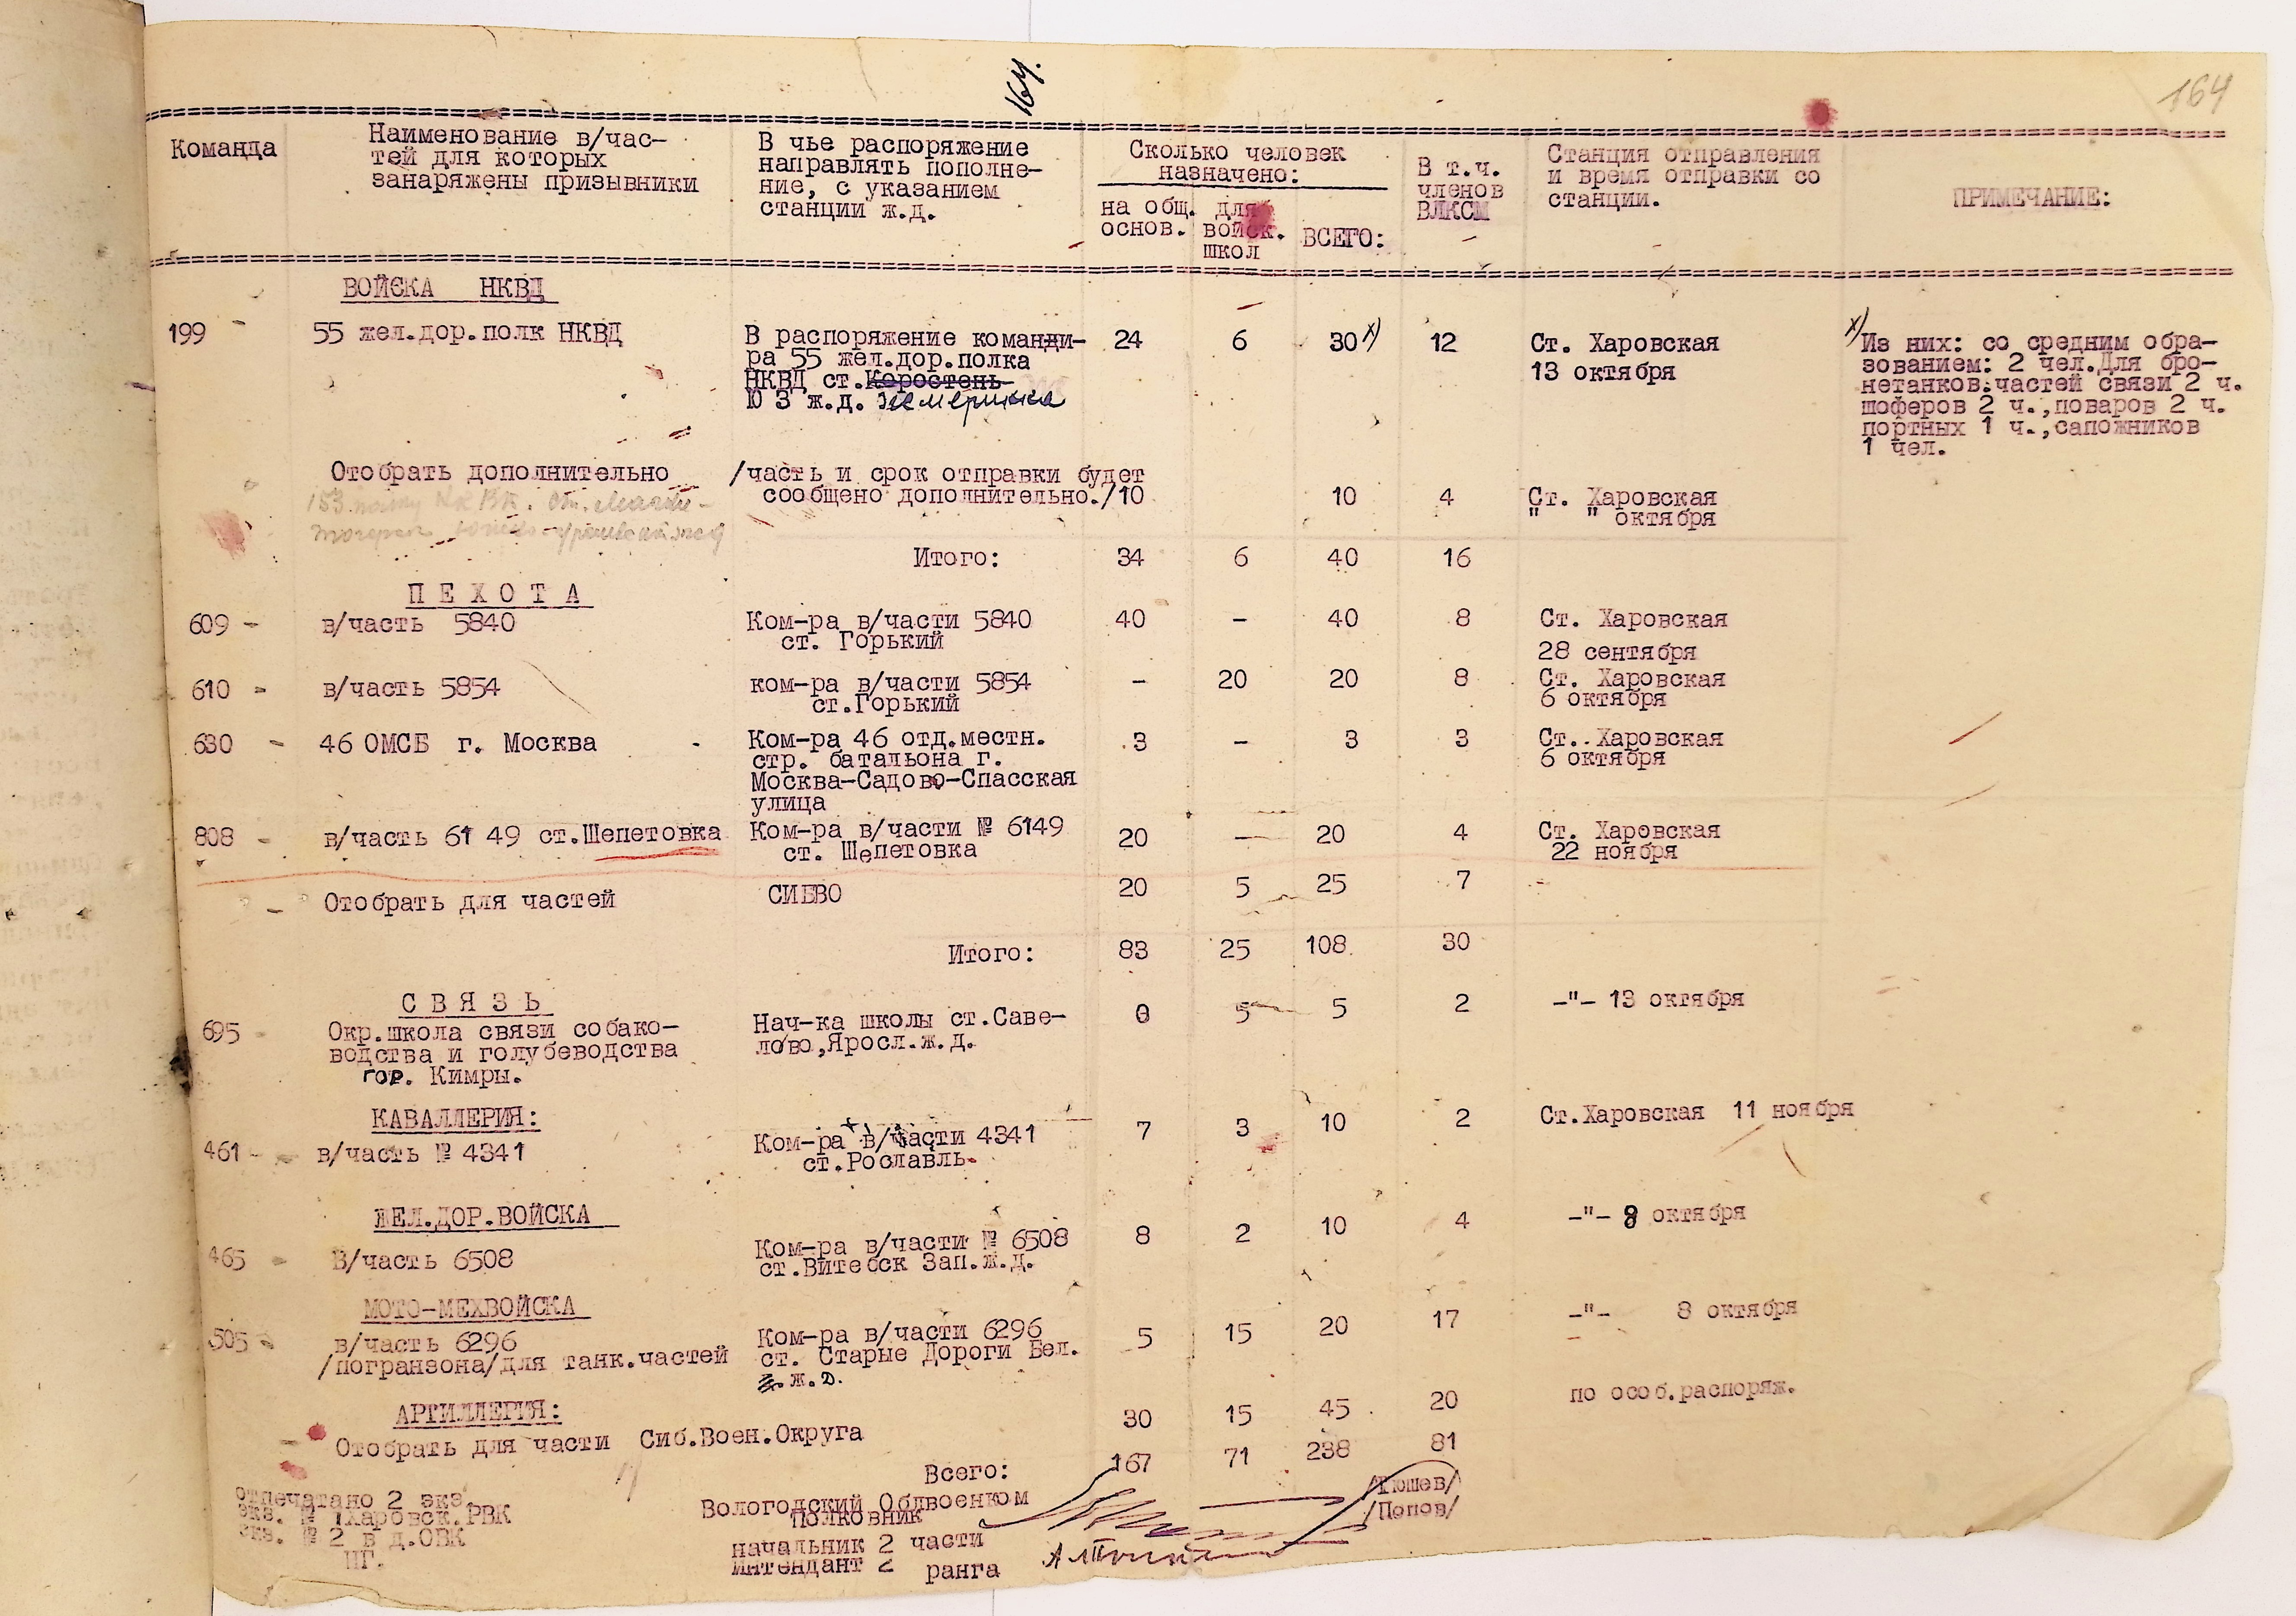 164.
164
Команда
Наименование в/час-
тей для которых
занаряжены призывники
В чье распоряжение
направлять пополне-
ние, с указанием
станции ж.д.
Сколько человек
назначено:
на общ.
основ.
для
войск.
школ
ВСЕГО:
В т.ч.
членов
ВЛКСМ
Станция отправления
и время отправки со
станции.
ПРИМЕЧАНИЕ:
ВОЙСКА НКВД
199 - 55 жел.дор.полк НКВД
В распоряжение команди-
ра 55 жел.дор.полка
НКВД ст.Коростень
Ю З ж.д. Жмеринка
24 6 30 х) 12
Ст. Харовская
13 октября
х) Из них: со средним обра-
зованием: 2 чел.Для бро-
нетанков.частей связи 2 ч.
шоферов 2 ч.,поваров 2 ч.
портных 1 ч.,сапожников
1 чел.
Отобрать дополнительно
/часть и срок отправки будет
сообщено дополнительно./
10 10 4
Ст. Харовская
" " октября
153 полку
Итого: 34 6 40 16
П Е Х О Т А
609 - в/часть 5840
Ком-ра в/части 5840
ст. Горький
40 - 40 8
Ст. Харовская
28 сентября
610 - в/часть 5854
ком-ра в/части 5854
ст.Горький
- 20 20 8
Ст. Харовская
6 октября
630 - 46 ОМСБ г. Москва
Ком-ра 46 отд.местн.
стр. батальона г.
Москва-Садово-Спасская
улица
3 - 3 3
Ст. Харовская
6 октября
808 - в/часть 61 49 ст.Шепетовка
Ком-ра в/части № 6149
ст. Шепетовка
20 - 20 4
Ст. Харовская
22 ноября
- Отобрать для частей СИБВО 20 5 25 7
Итого: 83 25 108 30
С В Я З Ь
695 - Окр.школа связи собако-
водства и голубеводства
гор. Кимры.
Нач-ка школы ст.Саве-
лово,Яросл.ж.д.
0 5 5 2
-"- 13 октября
КАВАЛЛЕРИЯ:
461 - в/часть № 4341
Ком-ра в/части 4341
ст.Рославль.
7 3 10 2
Ст.Харовская 11 ноября
ЖЕЛ.ДОР.ВОЙСКА
465 - В/часть 6508
Ком-ра в/части № 6508
ст.Витебск Зап.ж.д.
8 2 10 4
-"- 9 октября
МОТО-МЕХВОЙСКА
505 - в/часть 6296
/погранзона/для танк.частей
Ком-ра в/части 6296
ст. Старые Дороги Бел.
ж.д.
5 15 20 17
-"- 8 октября
АРТИЛЛЕРИЯ:
- Отобрать для части Сиб.Воен.Округа
30 15 45 20
по особ.распоряж.
Всего: 167 71 238 81
отпечатано 2 экз.
экз. № 1Харовск.РВК
экз. № 2 в д.ОВК
ПГ.
Вологодский Облвоенком
Полковник
/Тюшев/
/Попов/
начальник 2 части
интендант 2 ранга